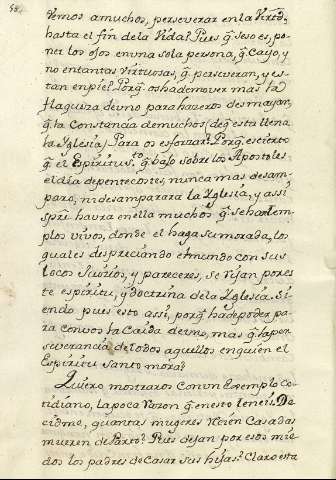 58.
Vemos a muchos, perseverar en la Virtud,
hasta el fin de la Vida? Pues q̃ seso es, po-
ner los ojos en una sola persona, q̃ Cayo, y
no en tantas virtuosas, q̃ perseveran, y es-
tan en pie? Porq̃ os ha de mover mas la
flaqueza de uno para haceros desmayar,
q̃ la Constancia de muchos, de q̃ esta llena
la Yglesia, Para os esforzar? Porq̃ es cierto
q̃ el Espiritu S.to q̃ bajo sobre los Apostoles
el dia de pentecostes, nunca mas desam-
paro, ni desamparará la Yglesia, y assi
spre̅ havra en ella muchos q̃ sehan tem-
plos vivos, donde el haga su morada, los
quales despreciando el mundo con sus
locos Juicios, y pareceres, se rijan por es
te espiritu, y doctrina de la Yglesia. Si
endo pues esto assi, porq̃ ha de poder pa-
ra con vos la Caida de uno, mas q̃ la per
severancia de todos aquellos en quien el
Espiritu santo mora?
Quiero mostraros Con un Exemplo Co-
tidiano, la poca Razon q̃ en esto teneis. De
cidme, quantas mugeres Recien Casadas
mueren de Parto? Pues dejan por esos mie-
dos los padres de Casar sus hijas? Claro esta